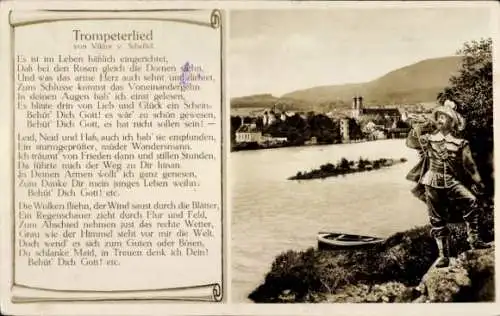 Trompeterlied
von Viktor v. Scheffel
Es ist im Leben häßlich eingerichtet,
Daß bei den Rosen gleich die Dornen stehn,
Und was das arme Herz auch sehnt und dichtet,
Zum Schlusse kommt das Voneinandergehn.
In deinen Augen hab' ich einst gelesen,
Es blitzte drin von Lieb und Glück ein Schein.
Behüt' Dich Gott! es wär' zu schön gewesen,
Behüt' Dich Gott, es hat nicht sollen sein!—
Leid, Neid und Haß, auch ich hab' sie empfunden,
Ein sturmgeprüfter, müder Wandersmann.
Ich träumt' von Frieden dann und stillen Stunden,
Da führte mich der Weg zu Dir hinan.
In Deinen Armen wollt' ich ganz genesen,
Zum Danke Dir mein junges Leben weihn.
Behüt' Dich Gott! etc.
Die Wolken fliehn, der Wind saust durch die Blätter,
Ein Regenschauer zieht durch Flur und Feld,
Zum Abschied nehmen just das rechte Wetter,
Grau wie der Himmel steht vor mir die Welt,
Doch wend' es sich zum Guten oder Bösen,
Du schlanke Maid, in Treuen denk ich Dein!
Behüt' Dich Gott! etc.